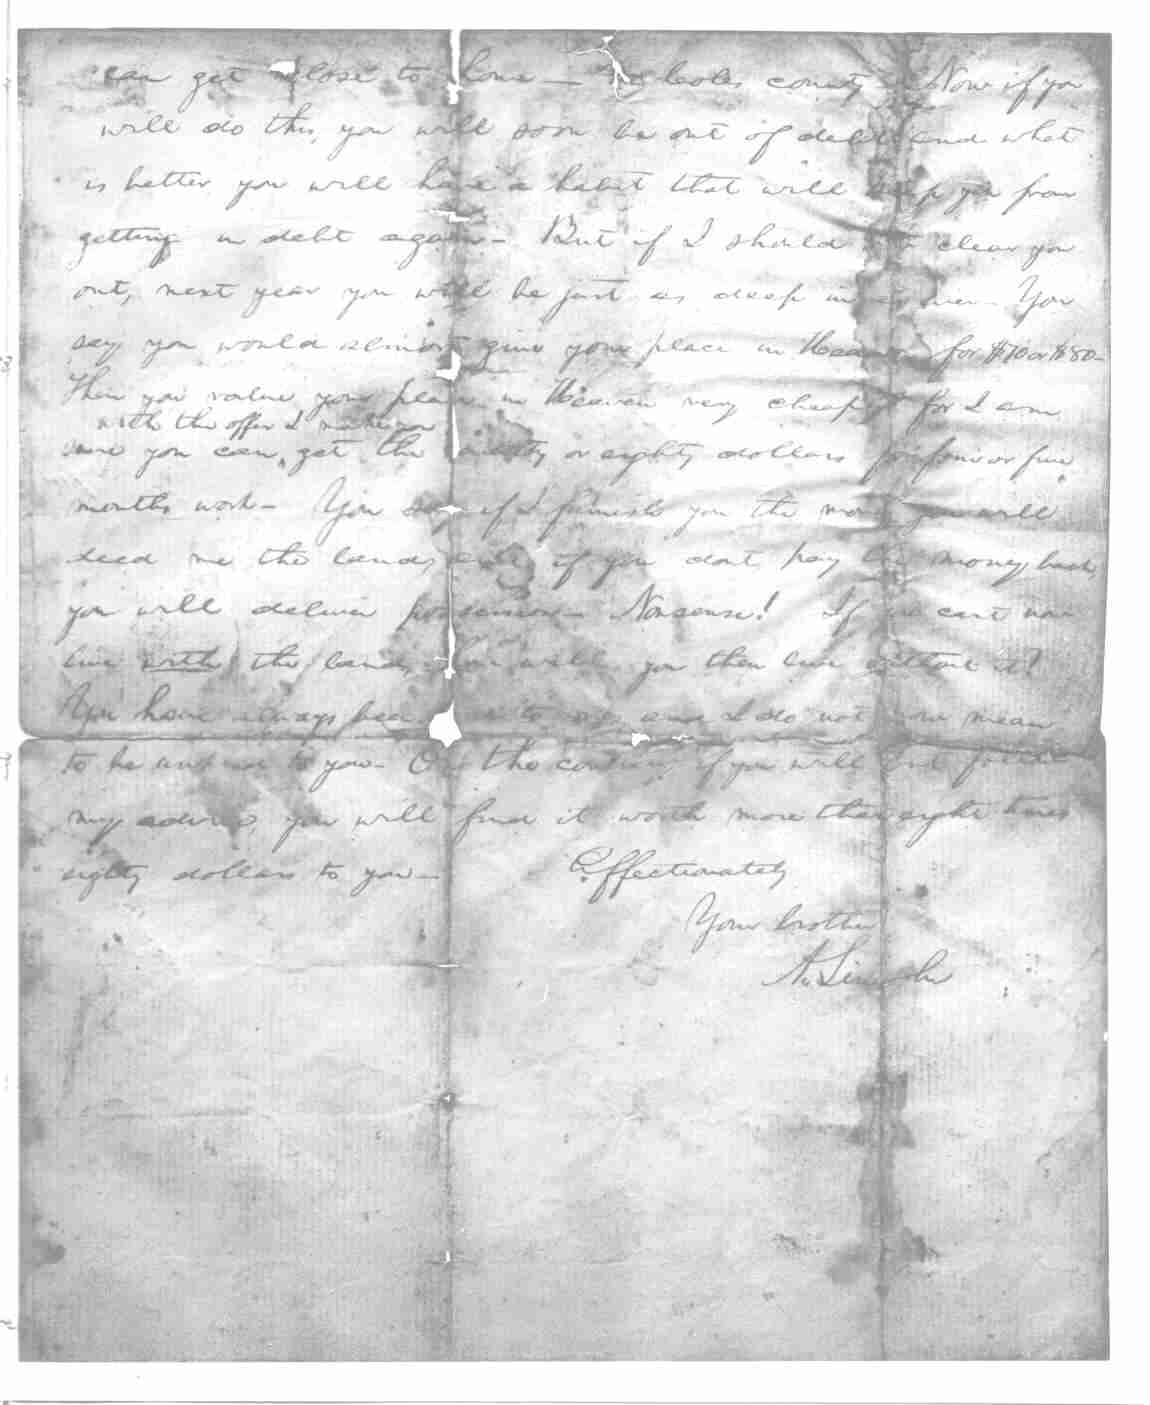 can get close to home - in Coles county - Now if you
will do this, you will soon be out of debt and what
is better you will have a habit that will keep you from
getting in debt again - But if I should clear you
out, next year you will be just as deep in as ever - You
say you would almost give your place in Heaven for $70 or $80 -
Then you value your place in Heaven very cheaply for I am
with the offer I make you
sure you can get the seventy or eighty dollars for four or five
months work - You say if I furnish you the money you will
deed me the land, and if you dont pay the money back,
you will deliver possession - Nonsense! If you cant now
live with the land, how will you then live without it?
You have always been to me, and I do not now mean
to be unkind to you - On the contrary if you will but follow
my advice, you will find it worth more than eight times
eighty dollars to you -
Affectionately
Your brother
A. Lincoln